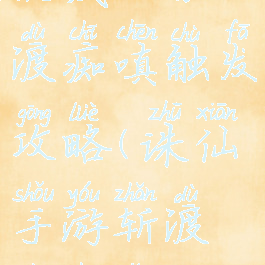 dù chī chēn chù fā
渡痴嗔触发
gōng lüè zhū xiān
攻略(诛仙
shǒu yóu zhǎn dù
手游斩渡